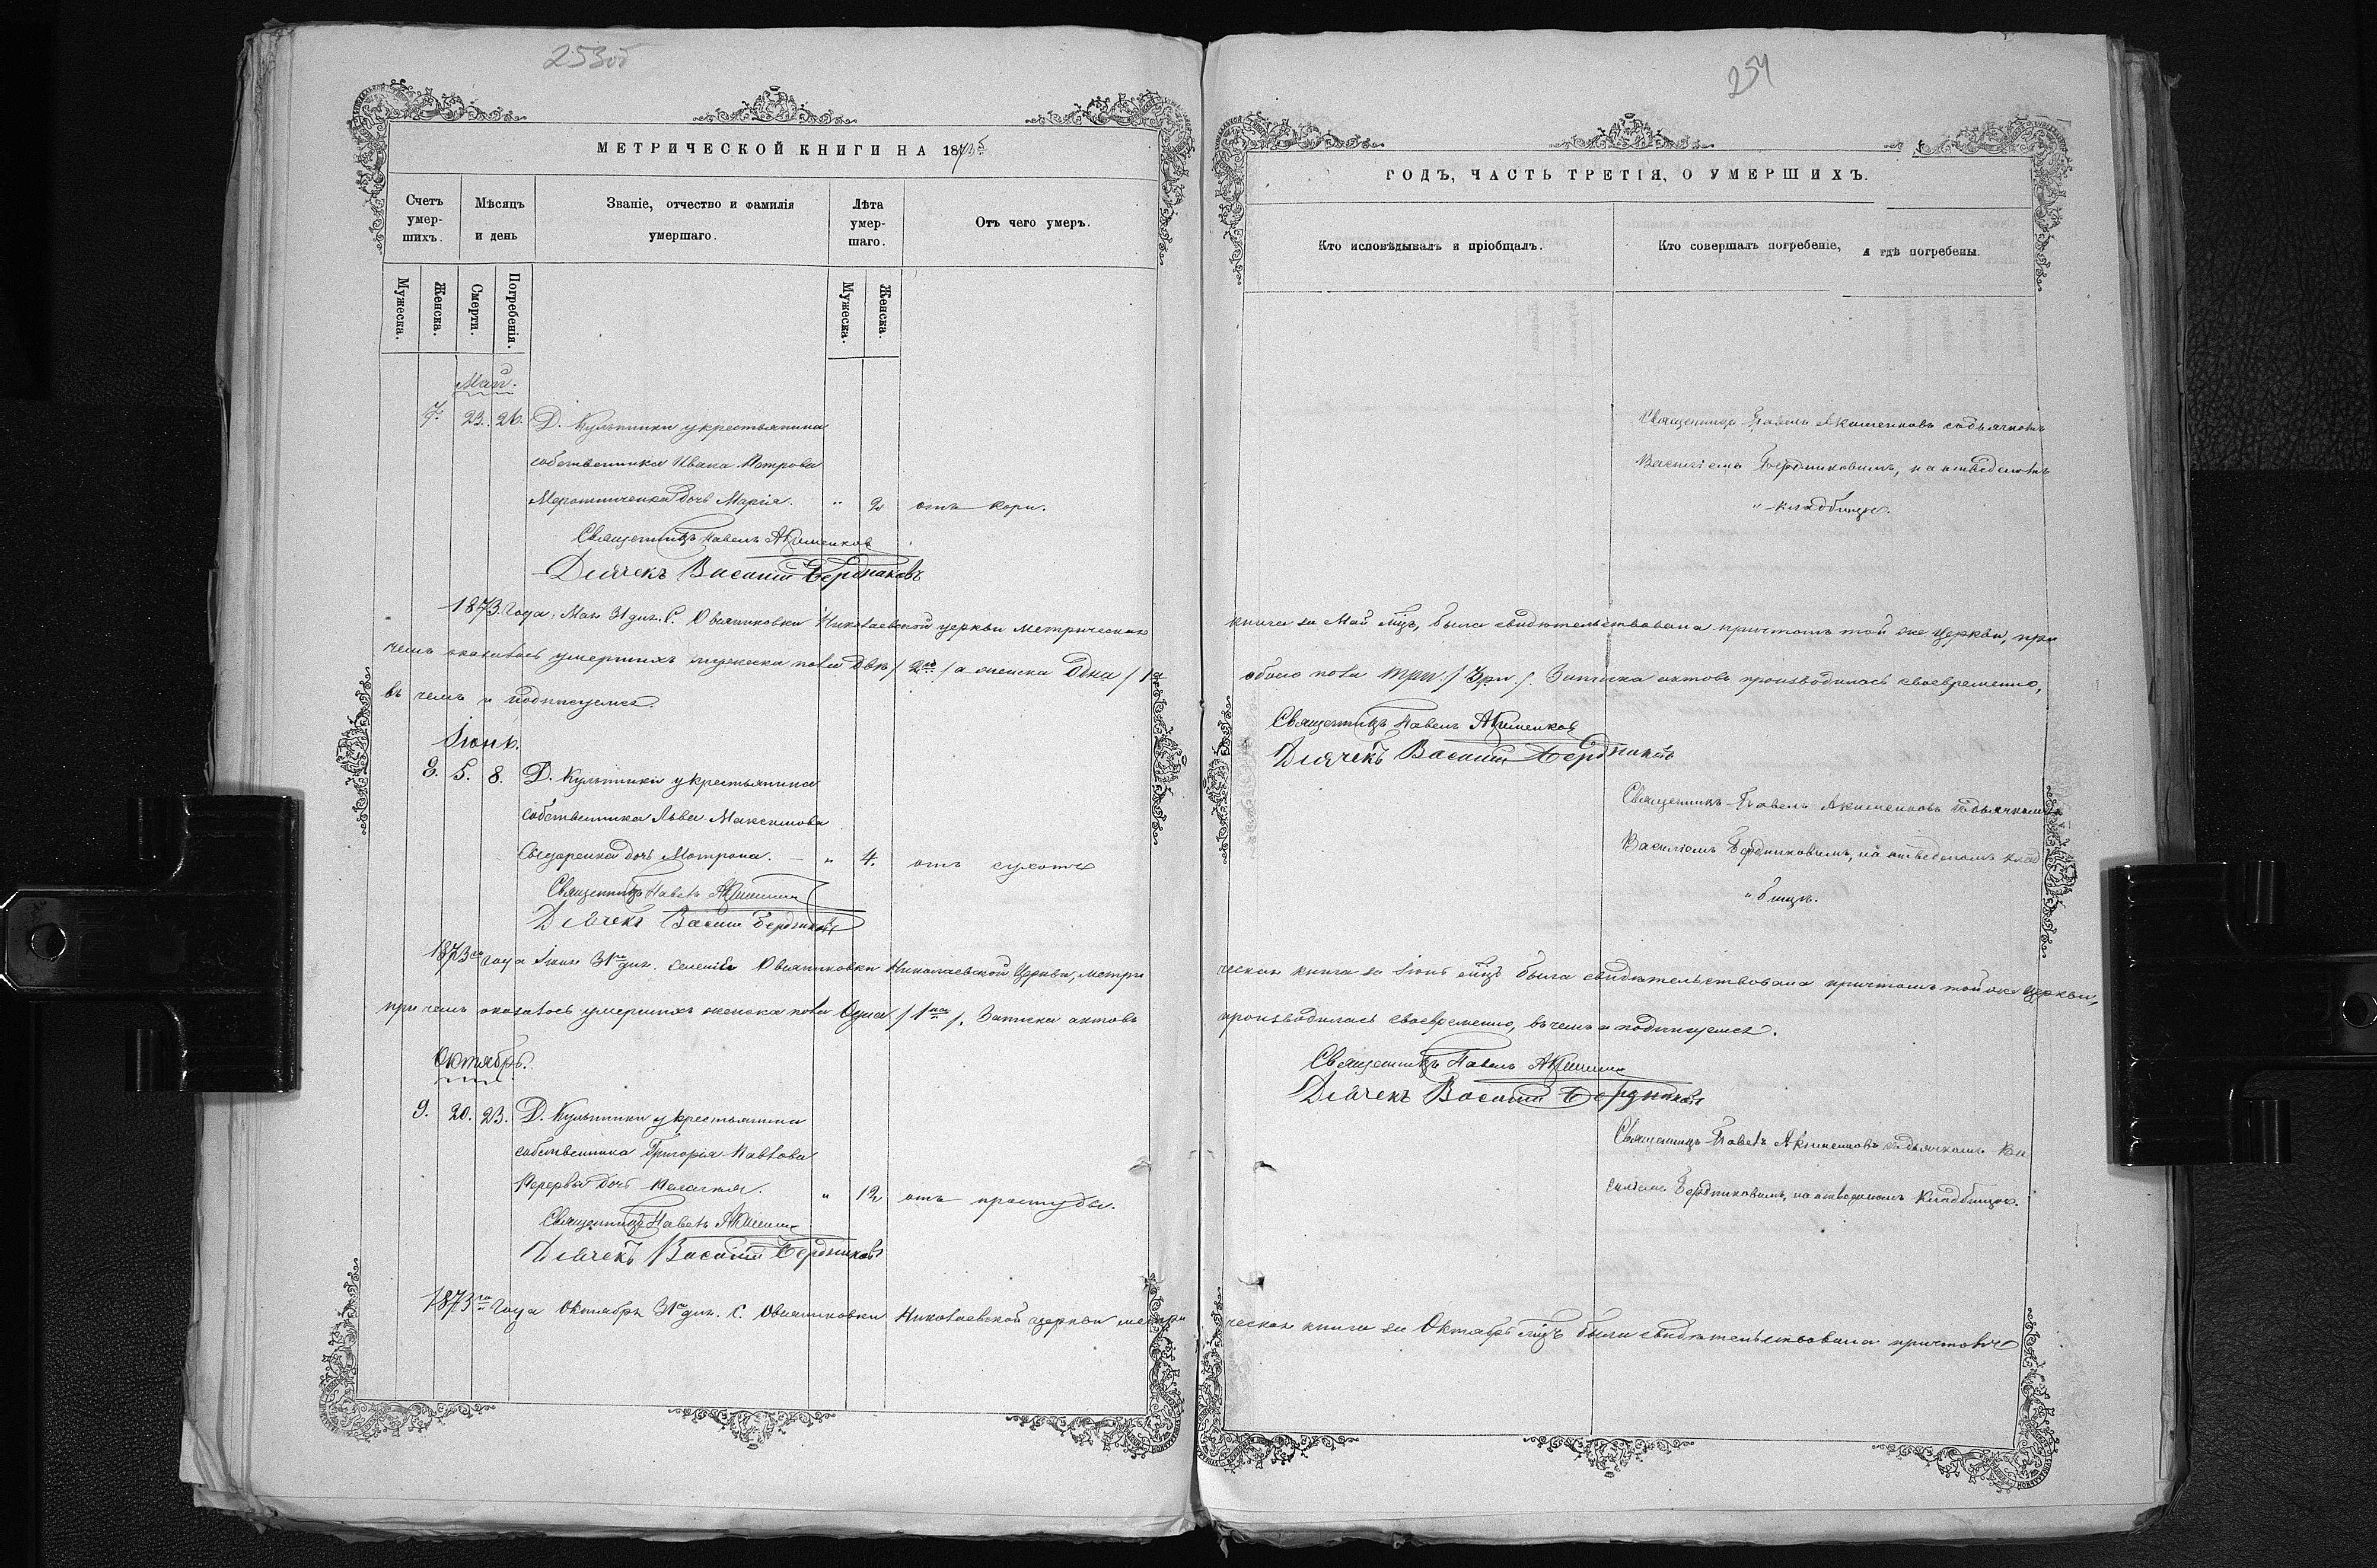 253об
МЕТРИЧЕСКОЙ КНИГИ НА 1873
Счетъ умер-шихъ.
Мѣсяцъ и день
Званіе, отчество и фамилія умершаго.
Лѣта умер-шаго.
Отъ чего умеръ.
Мужеска.
Женска.
Смерти.
Погребенія.
Мужеска.
Женска.
Май.
7. 23. 26. Д. Кульпинки у крестьянина
собственника Ивана Петрова
дочь Марія. " 2 отъ кори.
Священникъ Павелъ Акименковъ
Дьячекъ Василій Бердниковъ
1873 года, Мая 31 дня. С. Овсяниковки Николаевской церкви метрическая
чемъ оказалось умершихъ мужеска пола два / 2 / а женска одна / 1
въ чемъ и подписуемся.
Іюнь.
8. 5. 8. Д. Кульпинки у крестьянина
собственника Льва Максимова
дочь Матрона. " 4. отъ сухоты
Священникъ Павелъ
Дьячекъ Василій Бердниковъ
1873го года Іюня 31го дня. селенія Овсяниковки Николаевской Церкви, метри
при чемъ оказалось умершихъ женска пола Одна / 1на /. Записка актовъ
Октябрь.
9. 20. 23. Д. Кульпинки у крестьянина
собственника Григорія Павлова
Перервы дочь Пелагія. " 12 отъ простуды.
Священникъ Павелъ
Дьячекъ Василій Бердниковъ
1873го года Октября 31го дня. С. Овсяниковки Николаевской церкви метри
254
ГОДЪ, ЧАСТЬ ТРЕТІЯ, О УМЕРШИХЪ.
Кто исповѣдывалъ и пріобщалъ.
Кто совершалъ погребеніе, и гдѣ погребены.
Священникъ Павелъ Акименковъ съ дьячкомъ
Василіемъ Бердниковымъ, на отведеномъ
" кладбищѣ.
книга за Май мцъ, была свидѣтельствована причтомъ той же церкви, при
обоего пола три / 3ри /. Записка актовъ производилась своевременно,
Священникъ Павелъ Акименковъ
Дьячекъ Василій Бердниковъ
Священникъ Павелъ Акименковъ съ дьячкомъ
Василіемъ Бердниковымъ, на отведеномъ клад
" бищѣ.
ческая книга за Іюнь мцъ была свидѣтельствована причтомъ той же церкви,
производилась своевременно, въ чемъ и подписуемся.
Священникъ Павелъ
Дьячекъ Василій Бердниковъ
Священникъ Павелъ Акименковъ съ дьячкомъ Ва
силіемъ Бердниковымъ, на отведеномъ кладбищѣ.
ческая книга за Октябрь мцъ была свидѣтельствована причтомъ